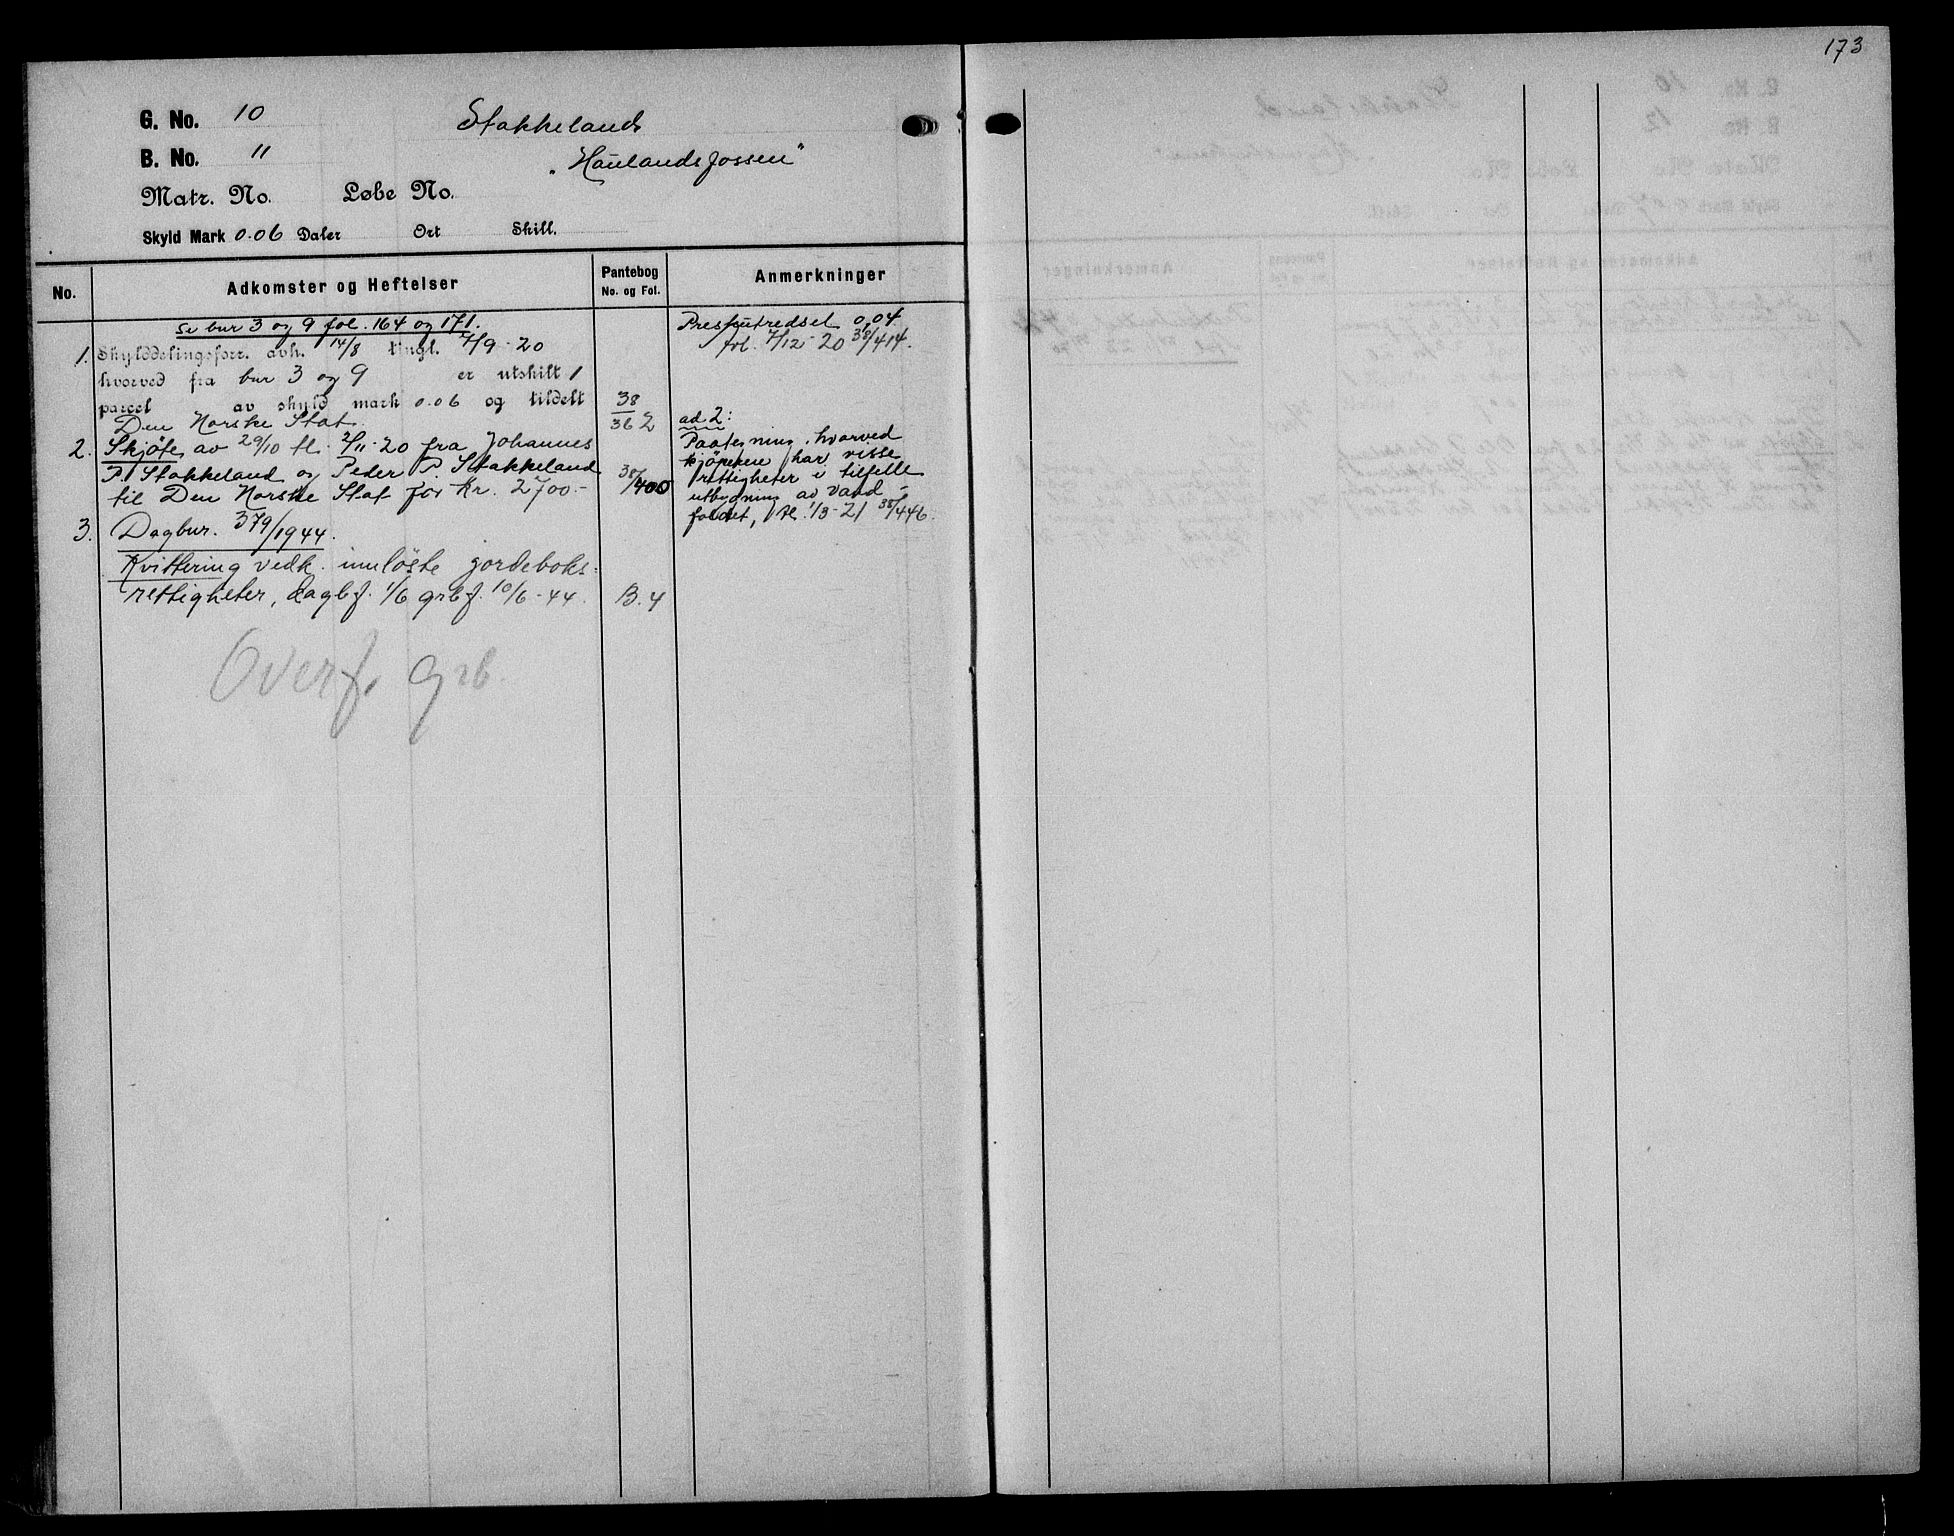 173
G. No. 10 Stakkeland
B. No. 11 "Haulandsfossen"
Matr. No. Løbe No.
Skyld Mark 0.06 Daler Ort Skill.
No. Adkomster og Heftelser Pantebog No. og Fol. Anmerkninger
Se bnr 3 og 9 fol. 164 og 171.
1. Skylddelingsforr. avh. 14/8 tingl. 7/9-20
hvorved fra bnr 3 og 9 er utskilt 1
parcel av skyld mark 0.06 og tildelt 38
Den Norske Stat. 362
2. Skjøte av 29/10 tl. 2/11-20 fra Johannes
P. Stakkeland og Peder P. Stakkeland 38/400
til Den Norske Stat for Kr. 2700.-
3. Dagbnr. 379/1944.
Kvittering vedk. innløste jordeboks-
rettigheter, dagbf. 1/6 grbf. 10/6-44. B. 4
Overf. grb.
Presteutredsel 0,04
frl. 7/12-20 38/414.
ad 2:
Paategning, hvorved
kjøperne har visse
rettigheter i tilfelle
utbygning av vand-
faldet, tl. 1/3-21 38/446.